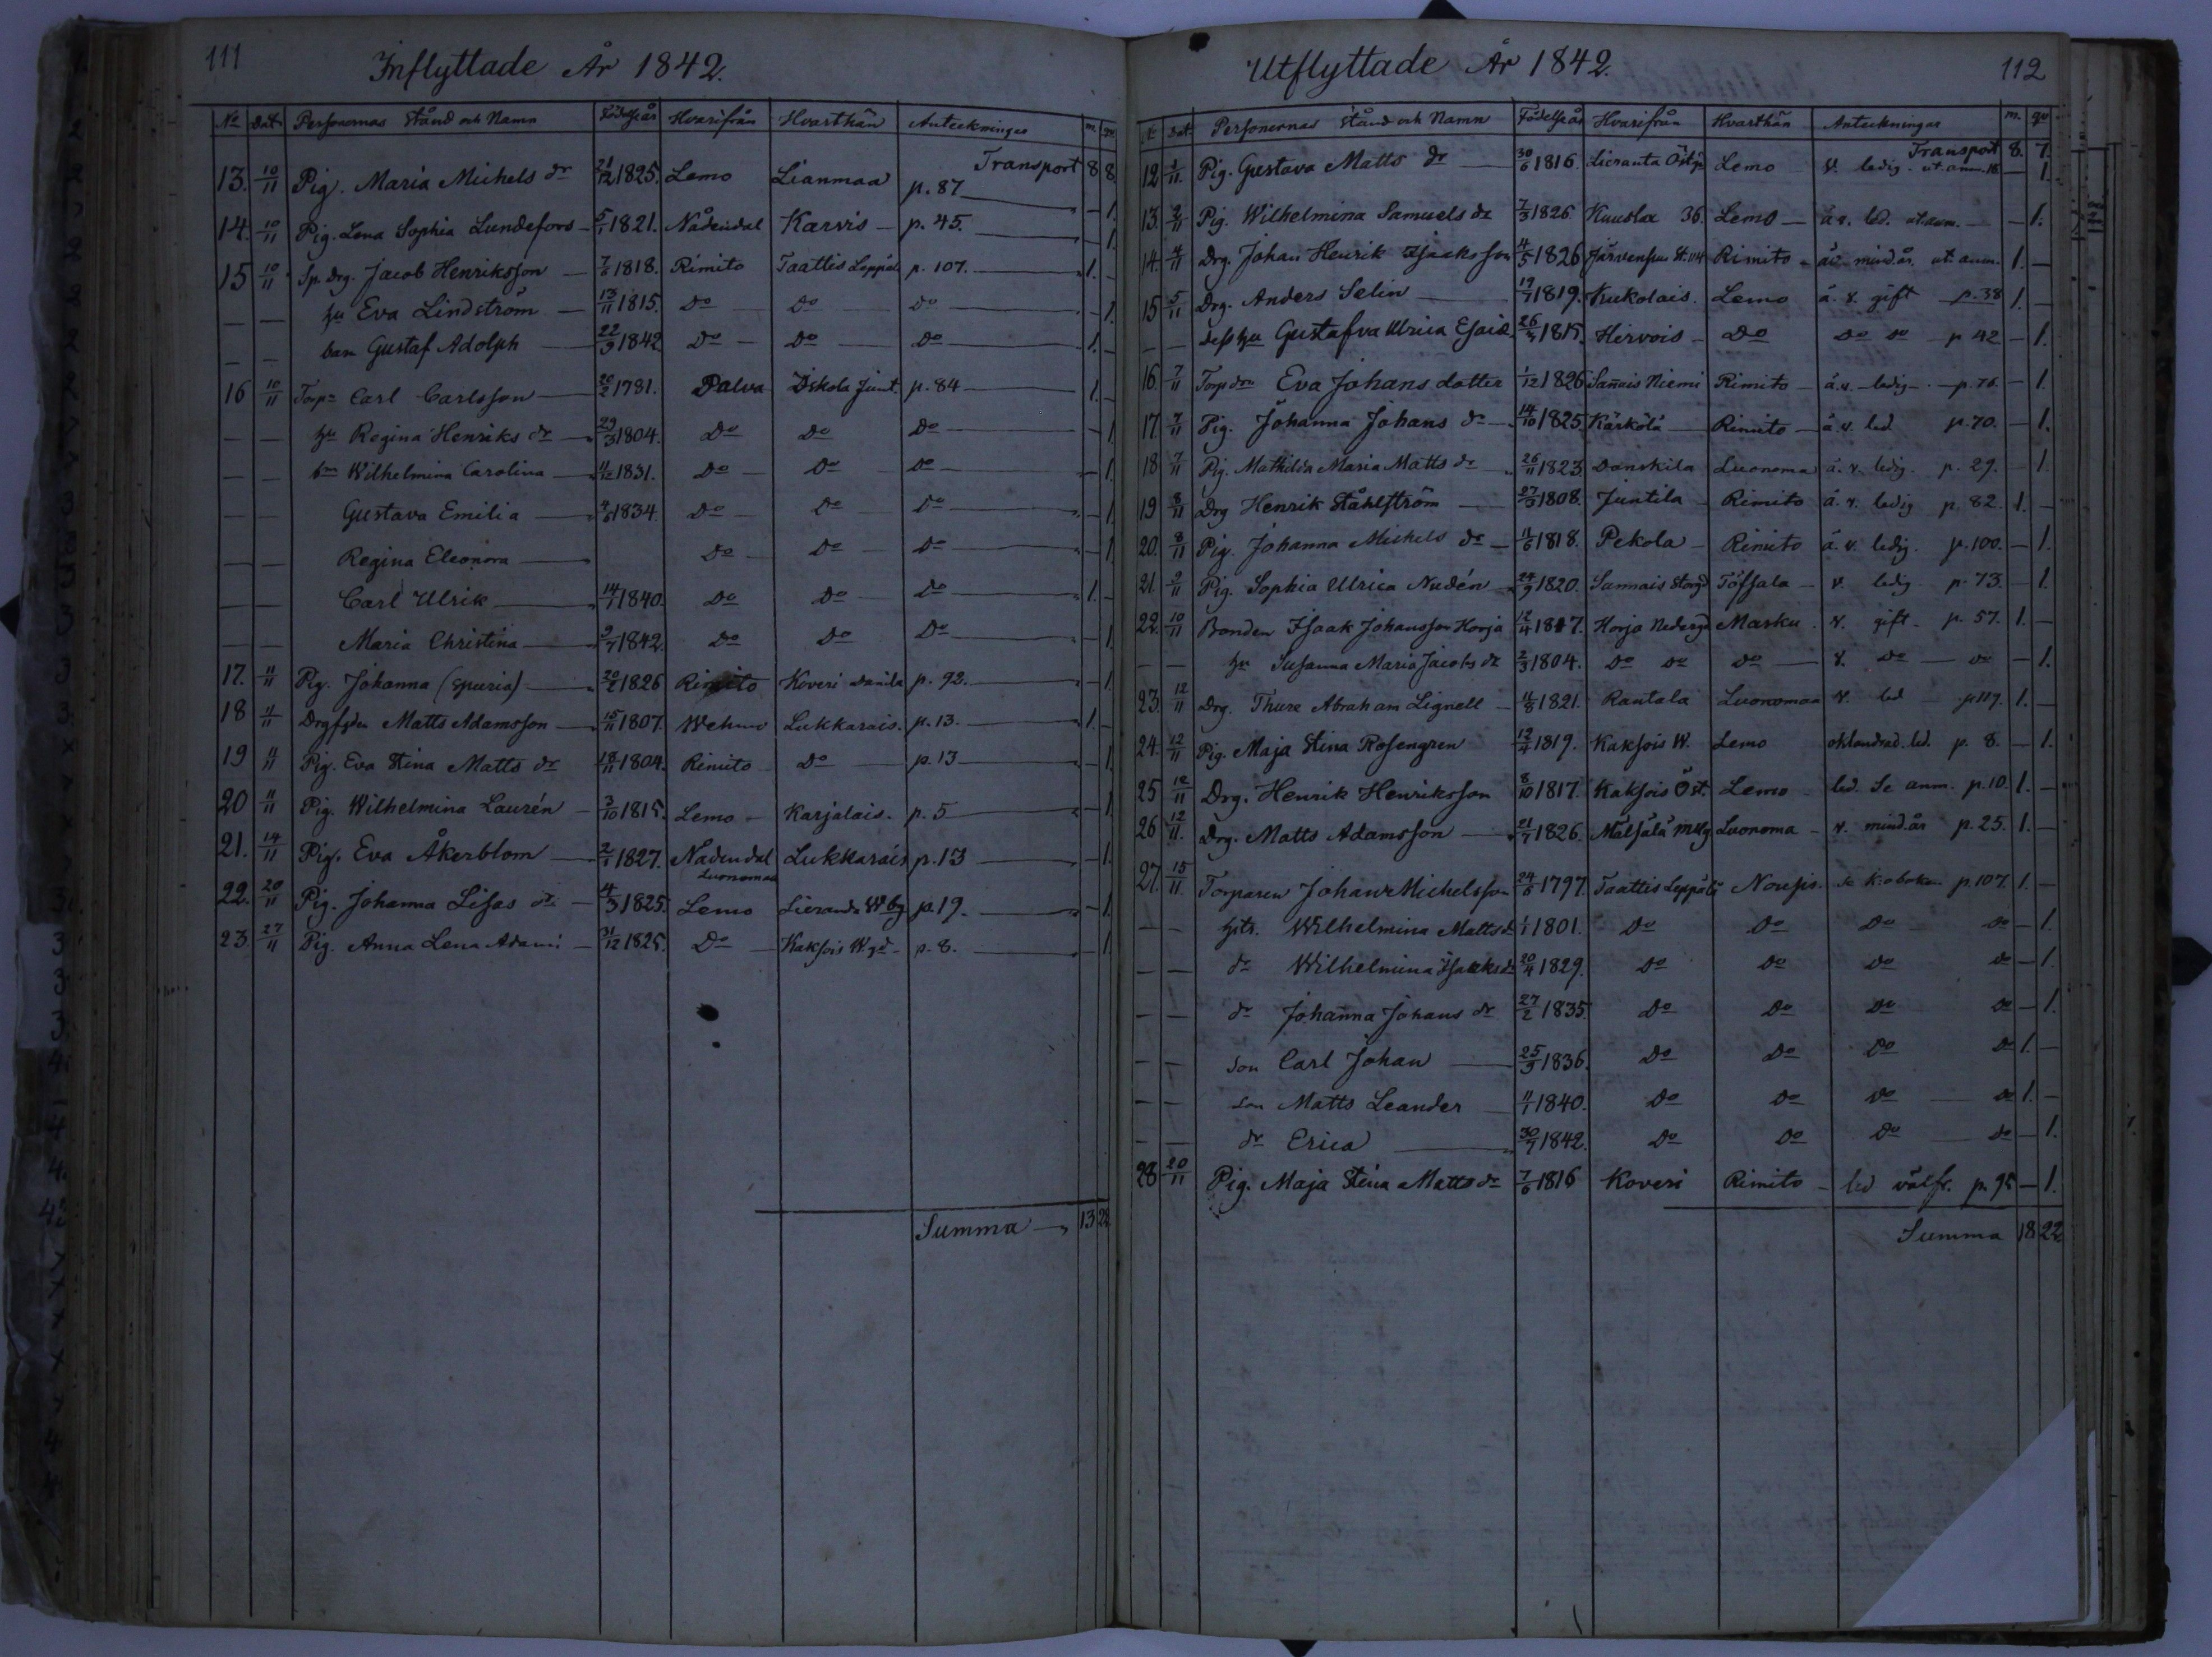 111
Inflyttade År 1842.
No Dat. Personernas Stånd och Namn Födelseår Hvarifrån Hvarthän Anteckningar m. qv
Transport 8 8
13. 10/11 Pig. Maria Michels dr 21/12 1825. Lemo Lianmaa p. 87 — 1.
14. 10/11 Pig. Lena Sophia Lundefors 5/1 1821. Nådendal Karvis p. 45. — 1.
15 10/11 Sp. Drg. Jacob Henriksson 7/6 1818. Rimito Taattis Leppäl p. 107. 1. —
— — hu Eva Lindström 13/11 1815. Do Do Do — 1.
— — barn Gustaf Adolph 22/9 1842. Do Do Do 1. —
16 10/11 Torp. Carl Carlsson 20/2 1781. Palva Iskola Junt. p. 84 1. —
— — hu Regina Henriks dr 29/3 1804. Do Do Do — 1.
— — bn Wilhelmina Carolina 4/12 1831. Do Do Do — 1.
— — Gustava Emilia 4/6 1834. Do Do Do — 1.
— — Regina Eleonora Do Do Do — 1.
— — Carl Ulrik 14/1 1840. Do Do Do 1. —
— — Maria Christina 9/7 1842. Do Do Do — 1.
17. 11/11 Pig. Johanna (spuria) 20/2 1826 Rimito Koveri Danila p. 92. — 1.
18 11/11 Matts Adamsson 15/11 1807. Wehmo Lukkarais. p. 13. 1. —
19 11/11 Pig. Eva Stina Matts dr 18/11 1804. Rimito Do p. 13 — 1.
20 11/11 Pig. Wilhelmina Laurén 3/10 1815. Lemo Karjalais. p. 5 — 1.
21. 14/11 Pig. Eva Åkerblom 2/1 1827. Nådendal Lukkarais p. 13 — 1.
Luonomaa
22. 20/11 Pig. Johanna Lisas dr 4/3 1825. Lemo Lieranda W bg p. 19. — 1.
23. 27/11 Pig. Anna Lena Adami 31/12 1825. Do Kaksois W.gd p. 8. — 1.
Summa 13 22
Utflyttade År 1842.
112
No Dat. Personernas Stånd och Namn Födelseår Hvarifrån Hvarthän Anteckningar m. qv
Transport 8. 7.
12 1/11. Pig. Gustava Matts dr 30/6 1816. Lieranta Östg. Lemo v. ledig. ut. anm. 18. — 1.
13. 2/11 Pig. Wilhelmina Samuels dr 7/3 1826. Kuusla 36. Lemo ä v. led. ut. anm. — 1.
14. 4/11 Drg. Johan Henrik Isaksson 4/5 1826 Järvenpää St. 114 Rimito äv. mind.år. ut. anm. 1. —
15 5/11 Drg. Anders Selin 19/7 1819. Kukolais. Lemo ä. v. gift p. 38 1. —
— — dess hu Gustafva Ulrica Esaid. 26/3 1815. Hervois Do Do Do p. 42 — 1.
16. 7/11 Torpdr Eva Johans dotter 1/12 1826 Sañais Niemi Rimito ä. v. ledig p. 76. — 1.
17. 7/11 Pig. Johanna Johans dr 14/10 1825. Kärkölä Rimito ä. v. led. p. 70. — 1.
18 7/11 Pig. Mathilda Maria Matts dr 26/11 1823. Danskila Luonoma ä. v. ledig. p. 29. — 1.
19 8/11 Drg Henrik Ståhlström 27/3 1808. Juntila Rimito ä. v. ledig p. 82. 1. —
20. 8/11 Pig. Johanna Michels dr 11/6 1818. Pekola Rimito ä. v. ledig. p. 100. — 1.
21. 9/11 Pig. Sophia Ulrica Nudén 24/9 1820. Sannais Storgd Töfsala v. ledig p. 73. — 1.
22. 10/11 Bonden Isaak Johansson Horja 12/4 1817. Horja Nedergd Masku. v. gift. p. 57. 1. —
— — hu Susanna Maria Jacobs dr 2/3 1804. Do Do Do v. Do Do — 1.
23. 12/11 Drg. Thure Abraham Lignell 11/8 1821. Rantala Luonomaa v. led p 117. 1. —
24. 12/11 Pig. Maja Stina Rosengren 12/4 1819. Kaksois W. Lemo oklandrad. led. p. 8. — 1.
25 12/11 Drg. Henrik Henriksson 8/10 1817. Kaksois Öst. Lemo led. Se anm. p. 10. 1. —
26 12/11. Drg. Matts Adamsson 21/7 1826. Mälsälä Luonoma v. mind.år p. 25. 1. —
27. 15/11 Torparen Johan Michelsson 24/6 1797. Taattis Leppälä Nousis. Se K:oboken p. 107. 1. —
— — hstr. Wilhelmina Matts dr 1/1 1801. Do Do Do Do — 1.
— — dr Wilhelmina Isaaks dr 20/4 1829. Do Do Do Do — 1.
— — dr Johanna Johans dr 27/2 1835. Do Do Do Do — 1.
— — son Carl Johan 25/3 1836. Do Do Do Do 1. —
— — son Matts Leander 11/1 1840. Do Do Do Do 1. —
— — dr Erica 30/7 1842. Do Do Do Do — 1.
28 20/11 Pig. Maja Stina Matts dr 7/6 1816 Koveri Rimito led välfr. p. 95 — 1.
Summa 18 22